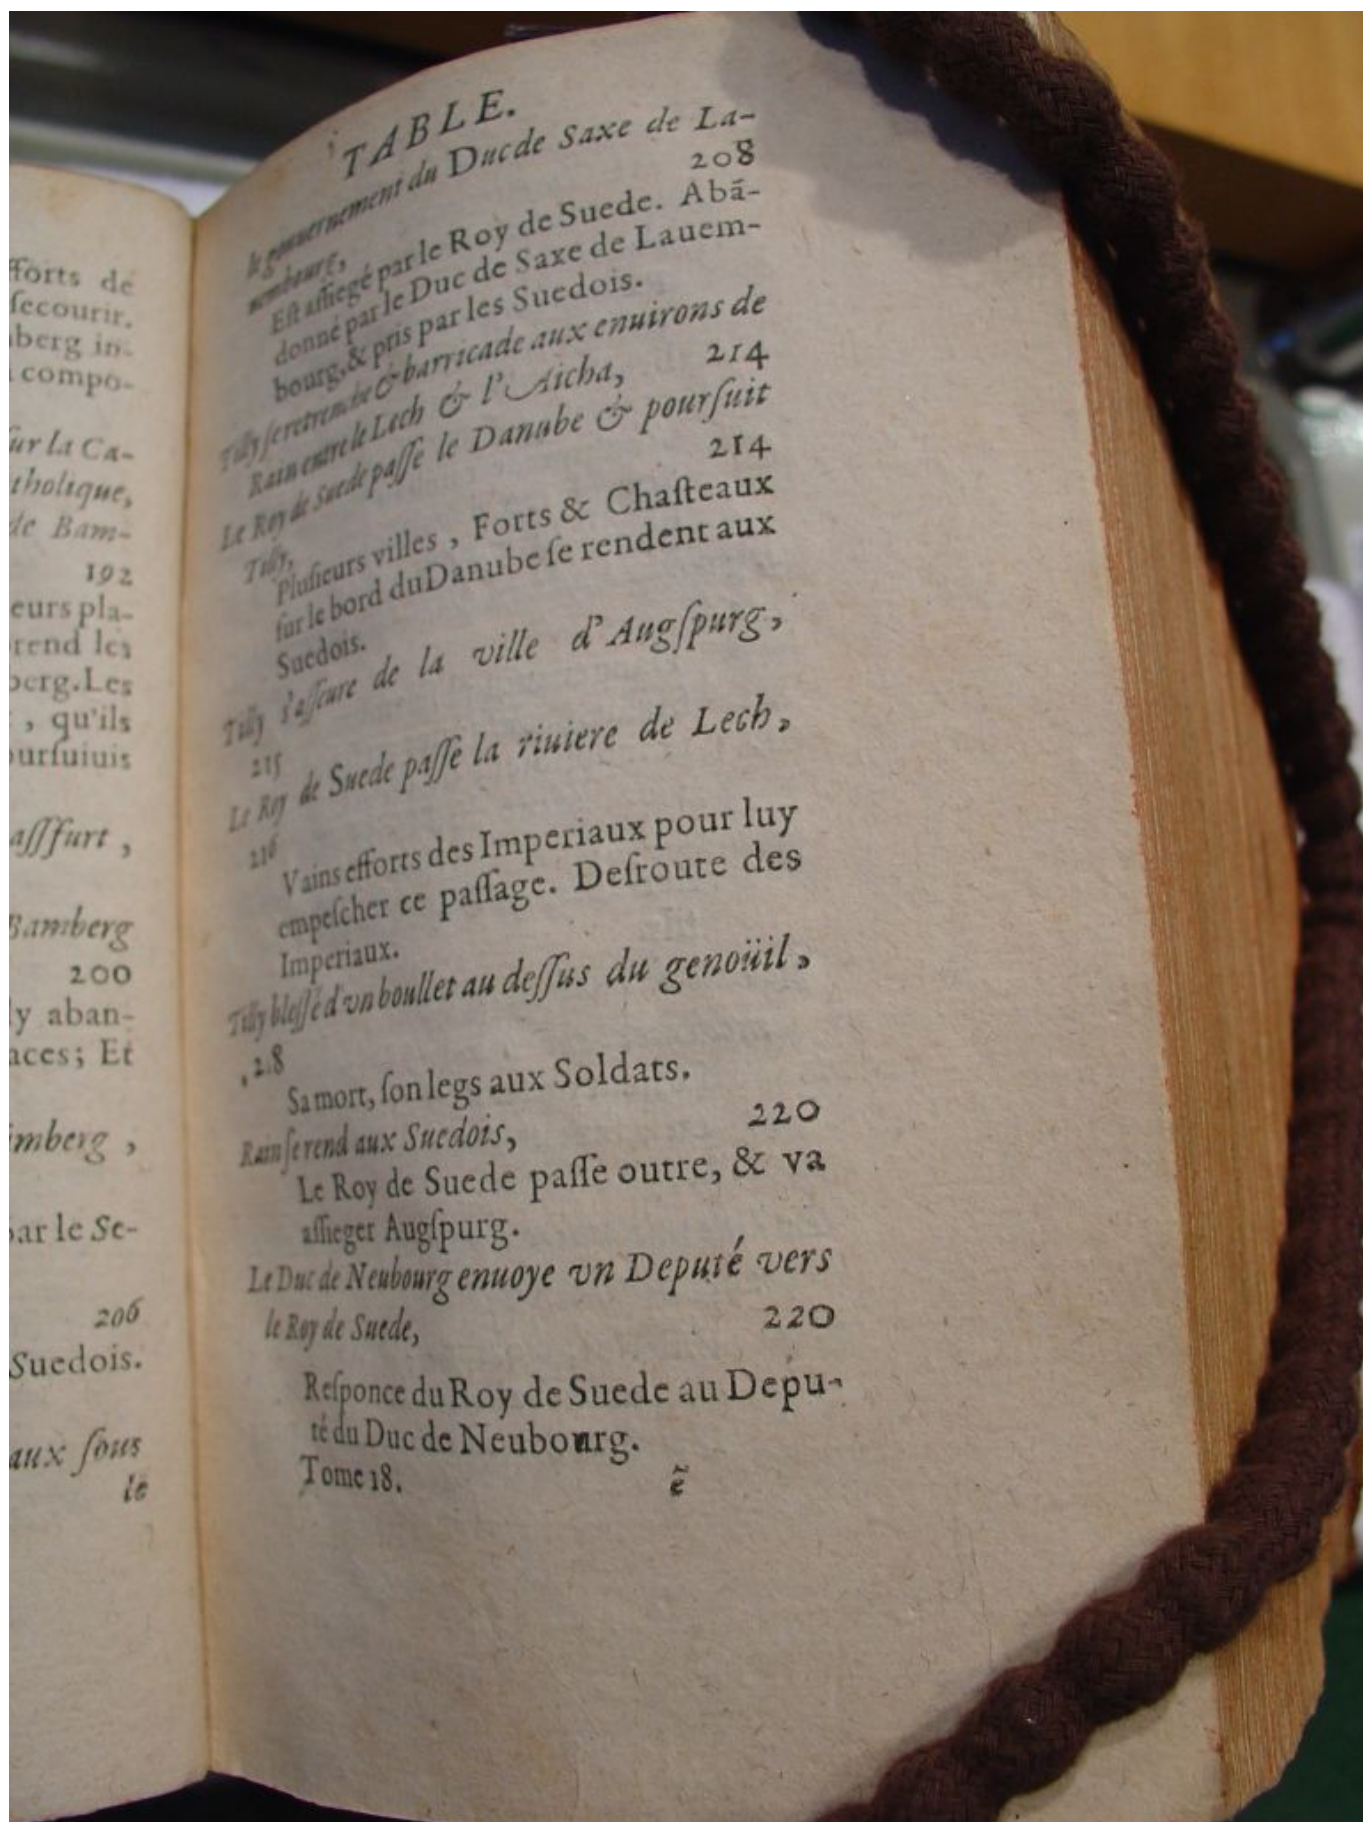 fforts de
ſecourir.
berg in-
compo-
ſur la Ca-
tholique,
de Bam-
192
eurs pla-
rend les
berg. Les
, qu'ils
ourſuiuis
aſſfurt,
Bamberg
200
y aban-
aces; Et
mberg,
par le Se-
206
Suedois.
aux ſous
le
TABLE.
le gouuernement du Duc de Saxe de La-
uembourg, 208
Eſt aſſiegé par le Roy de Suede. Abã-
donné par le Duc de Saxe de Lauem-
bourg, & pris par les Suedois.
Tilly ſe retrenche & barricade aux enuirons de
Rain entre le Lech & l'Aicha, 214
Le Roy de Suede paſſe le Danube & pourſuit
Tilly, 214
Pluſieurs villes, Forts & Chaſteaux
ſur le bord du Danube ſe rendent aux
Suedois.
Tilly s'aſſeure de la ville d'Augſpurg,
215
Le Roy de Suede paſſe la riuiere de Lech,
216
Vains efforts des Imperiaux pour luy
empeſcher ce paſſage. Deſroute des
Imperiaux.
Tilly bleſſé d'vn boullet au deſſus du genoüil,
Sa mort, ſon legs aux Soldats.
Rain ſe rend aux Suedois, 220
Le Roy de Suede paſſe outre, & va
aſſieger Augſpurg.
Le Duc de Neubourg enuoye vn Deputé vers
le Roy de Suede, 220
Reſponce du Roy de Suede au Depu-
té du Duc de Neubourg.
Tome 18. ẽ